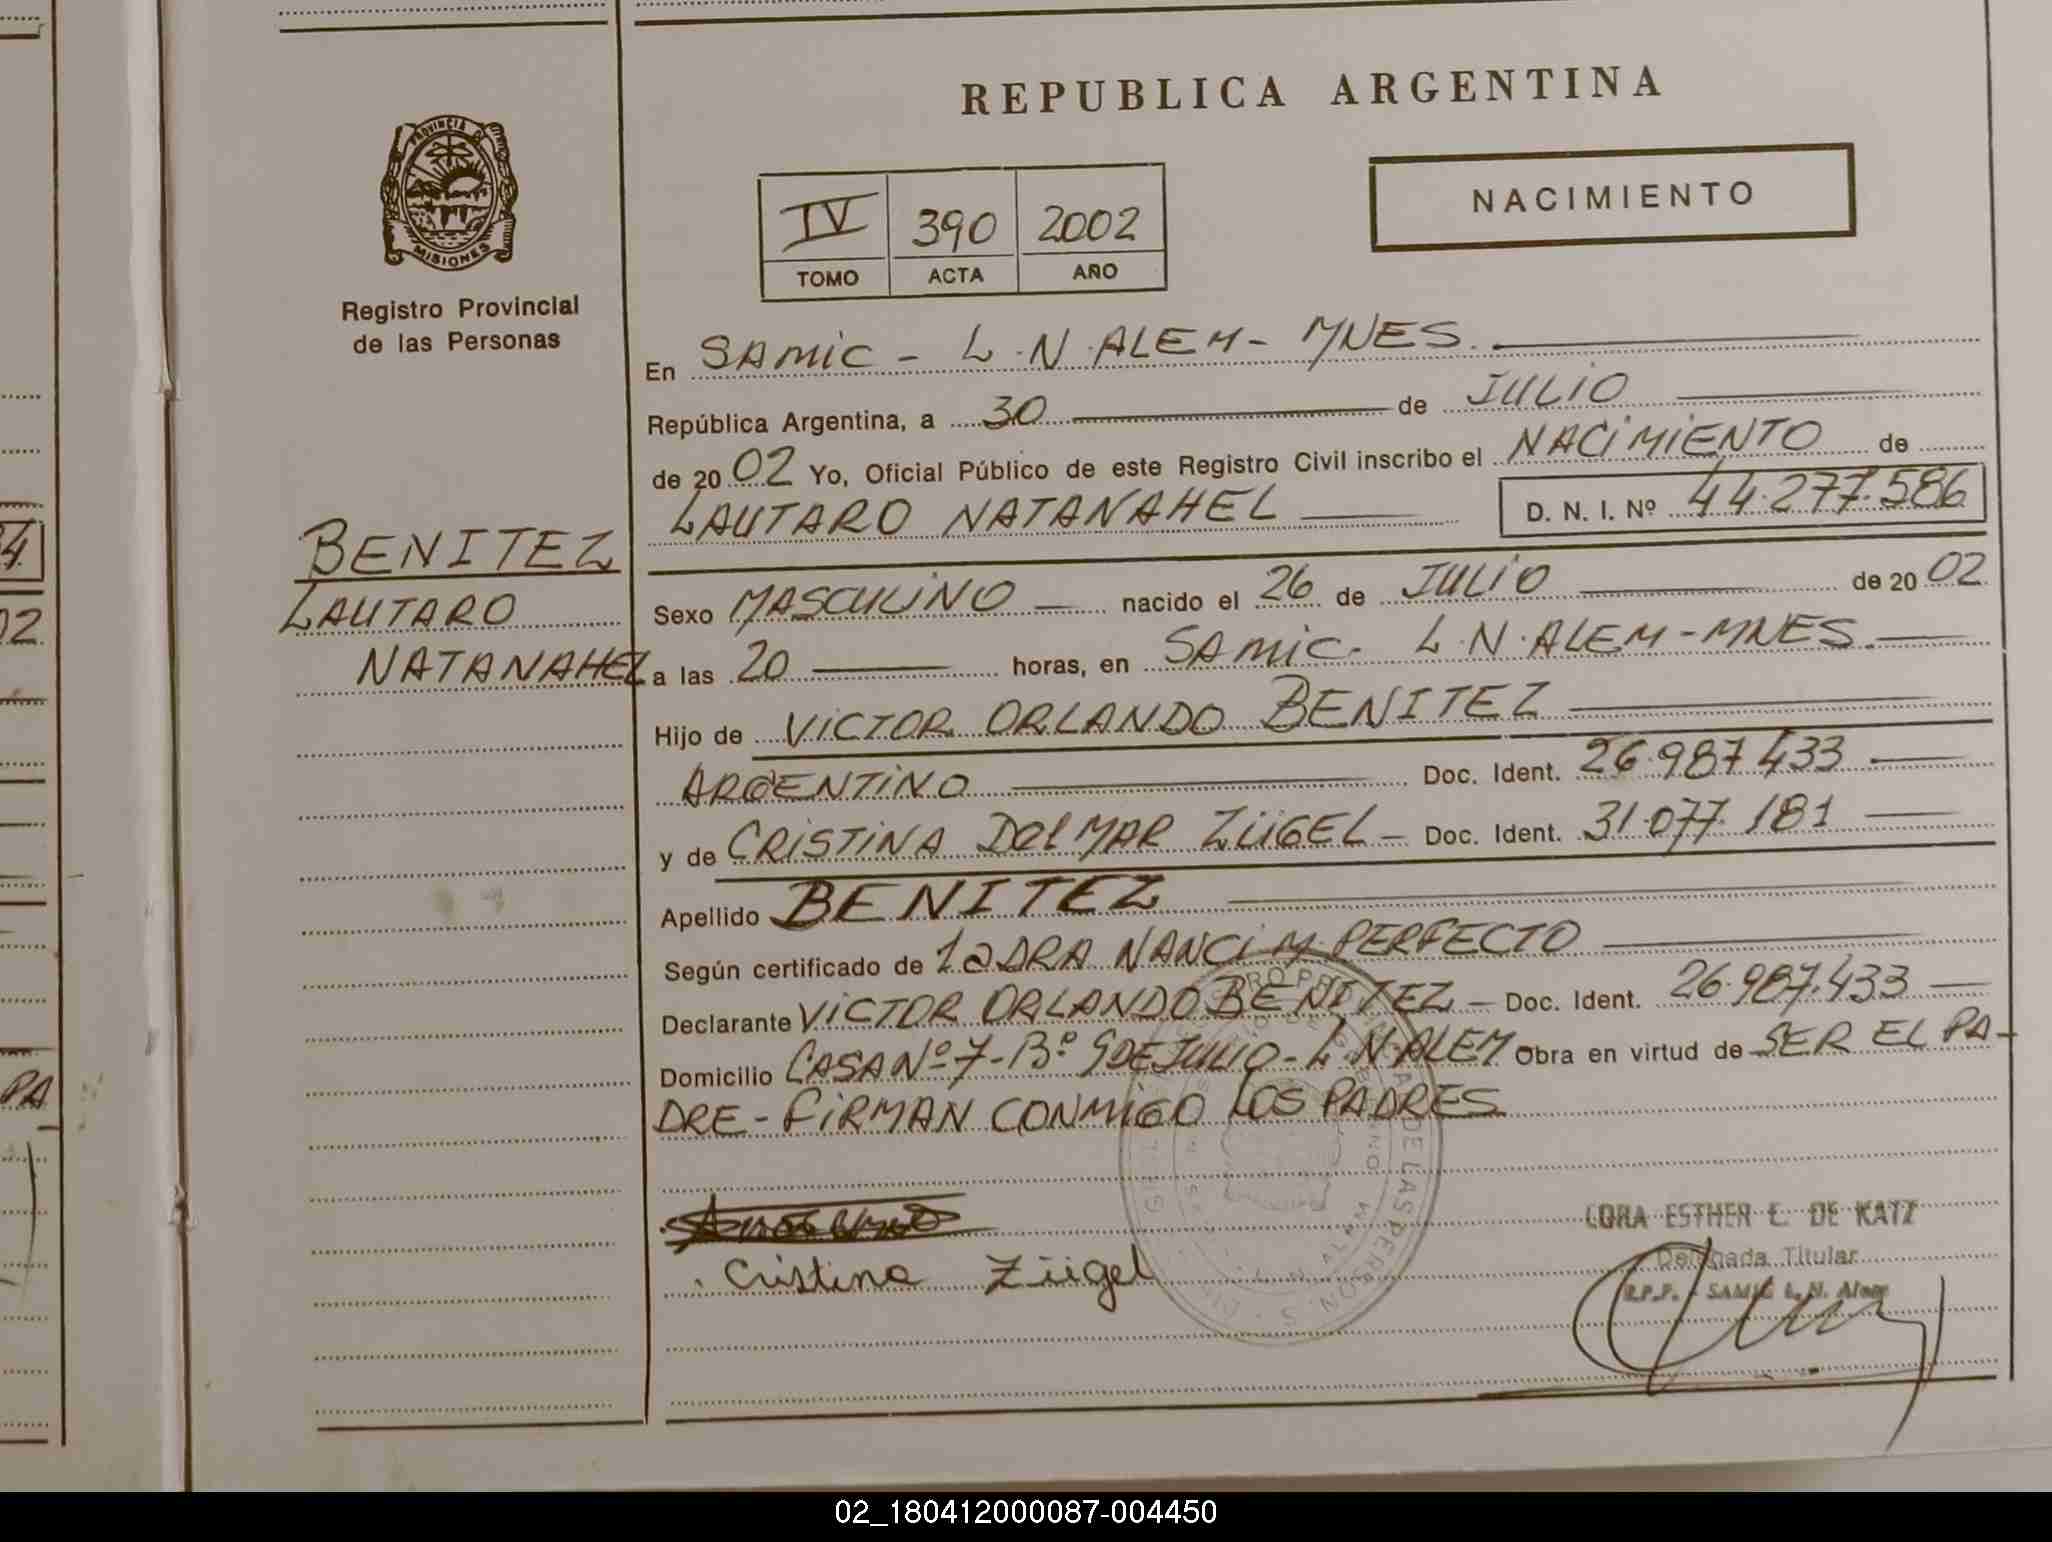 REPUBLICA ARGENTINA
PROVINCIA DE MISIONES
Registro Provincial
de las Personas
IV 390 2002
TOMO ACTA AÑO
NACIMIENTO
En SAMIC - L.N.ALEM - MNES.
República Argentina, a 30 de JULIO
de 2002 Yo, Oficial Público de este Registro Civil inscribo el NACIMIENTO de
LAUTARO NATANAHEL D. N. I. Nº 44.277.586
BENITEZ
LAUTARO
NATANAHEL
Sexo MASCULINO nacido el 26 de JULIO de 2002
a las 20 horas, en SAMIC. L.N.ALEM-MNES.
Hijo de VICTOR ORLANDO BENITEZ
ARGENTINO Doc. Ident. 26.987.433
y de CRISTINA Del MAR ZÜGEL - Doc. Ident. 31.077.181
Apellido BENITEZ
Según certificado de la DRA NANCI M. PERFECTO
Declarante VICTOR ORLANDO BENITEZ - Doc. Ident. 26.987.433
Domicilio CASA Nº 7 - Bº 9 DE JULIO - L.N.ALEM Obra en virtud de SER EL PA-
DRE - FIRMAN CONMIGO LOS PADRES
Cristina Zügel
LORA ESTHER E. DE KATZ
Delegada Titular
R.P.P. - SAMIC L. N. Alem
02
PA
02_180412000087-004450